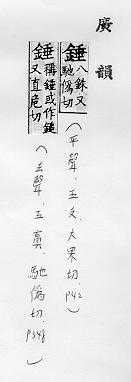 廣韻
錘 八銖又
馳僞切
（平聲．五支． 切．P42）
錘 稱錘或作鎚
又直危切
（去聲．五寘．馳偽切．P348）